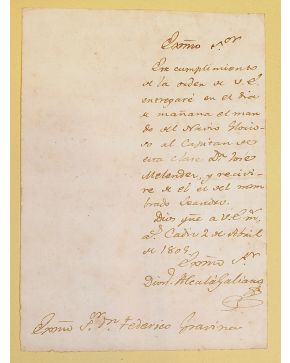 Exmo Sor
En cumplimiento
de la orden de V.E.
entregaré en el dia
de mañana el man
do del Navio Glorio
so al Capitan de
esta clase Dn Josef
Melendez, y recivi
re de el el del nom
brado Leandro.
Dios gue a V.E. m.
as. Cadiz 2 de Abril
de 1805.
Exmo Sr
Dioni. Alcalá Galiano
Exmo Sor Dn Federico Gravina